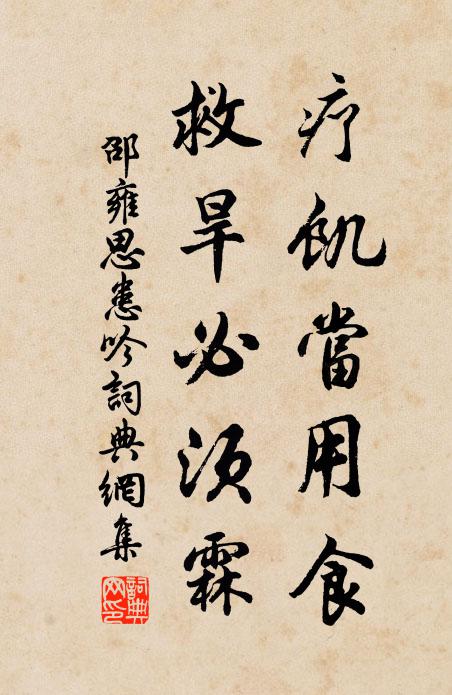 疗飢當用食
救旱必須霖
邵雍思患吟詞典網集
詞典网印